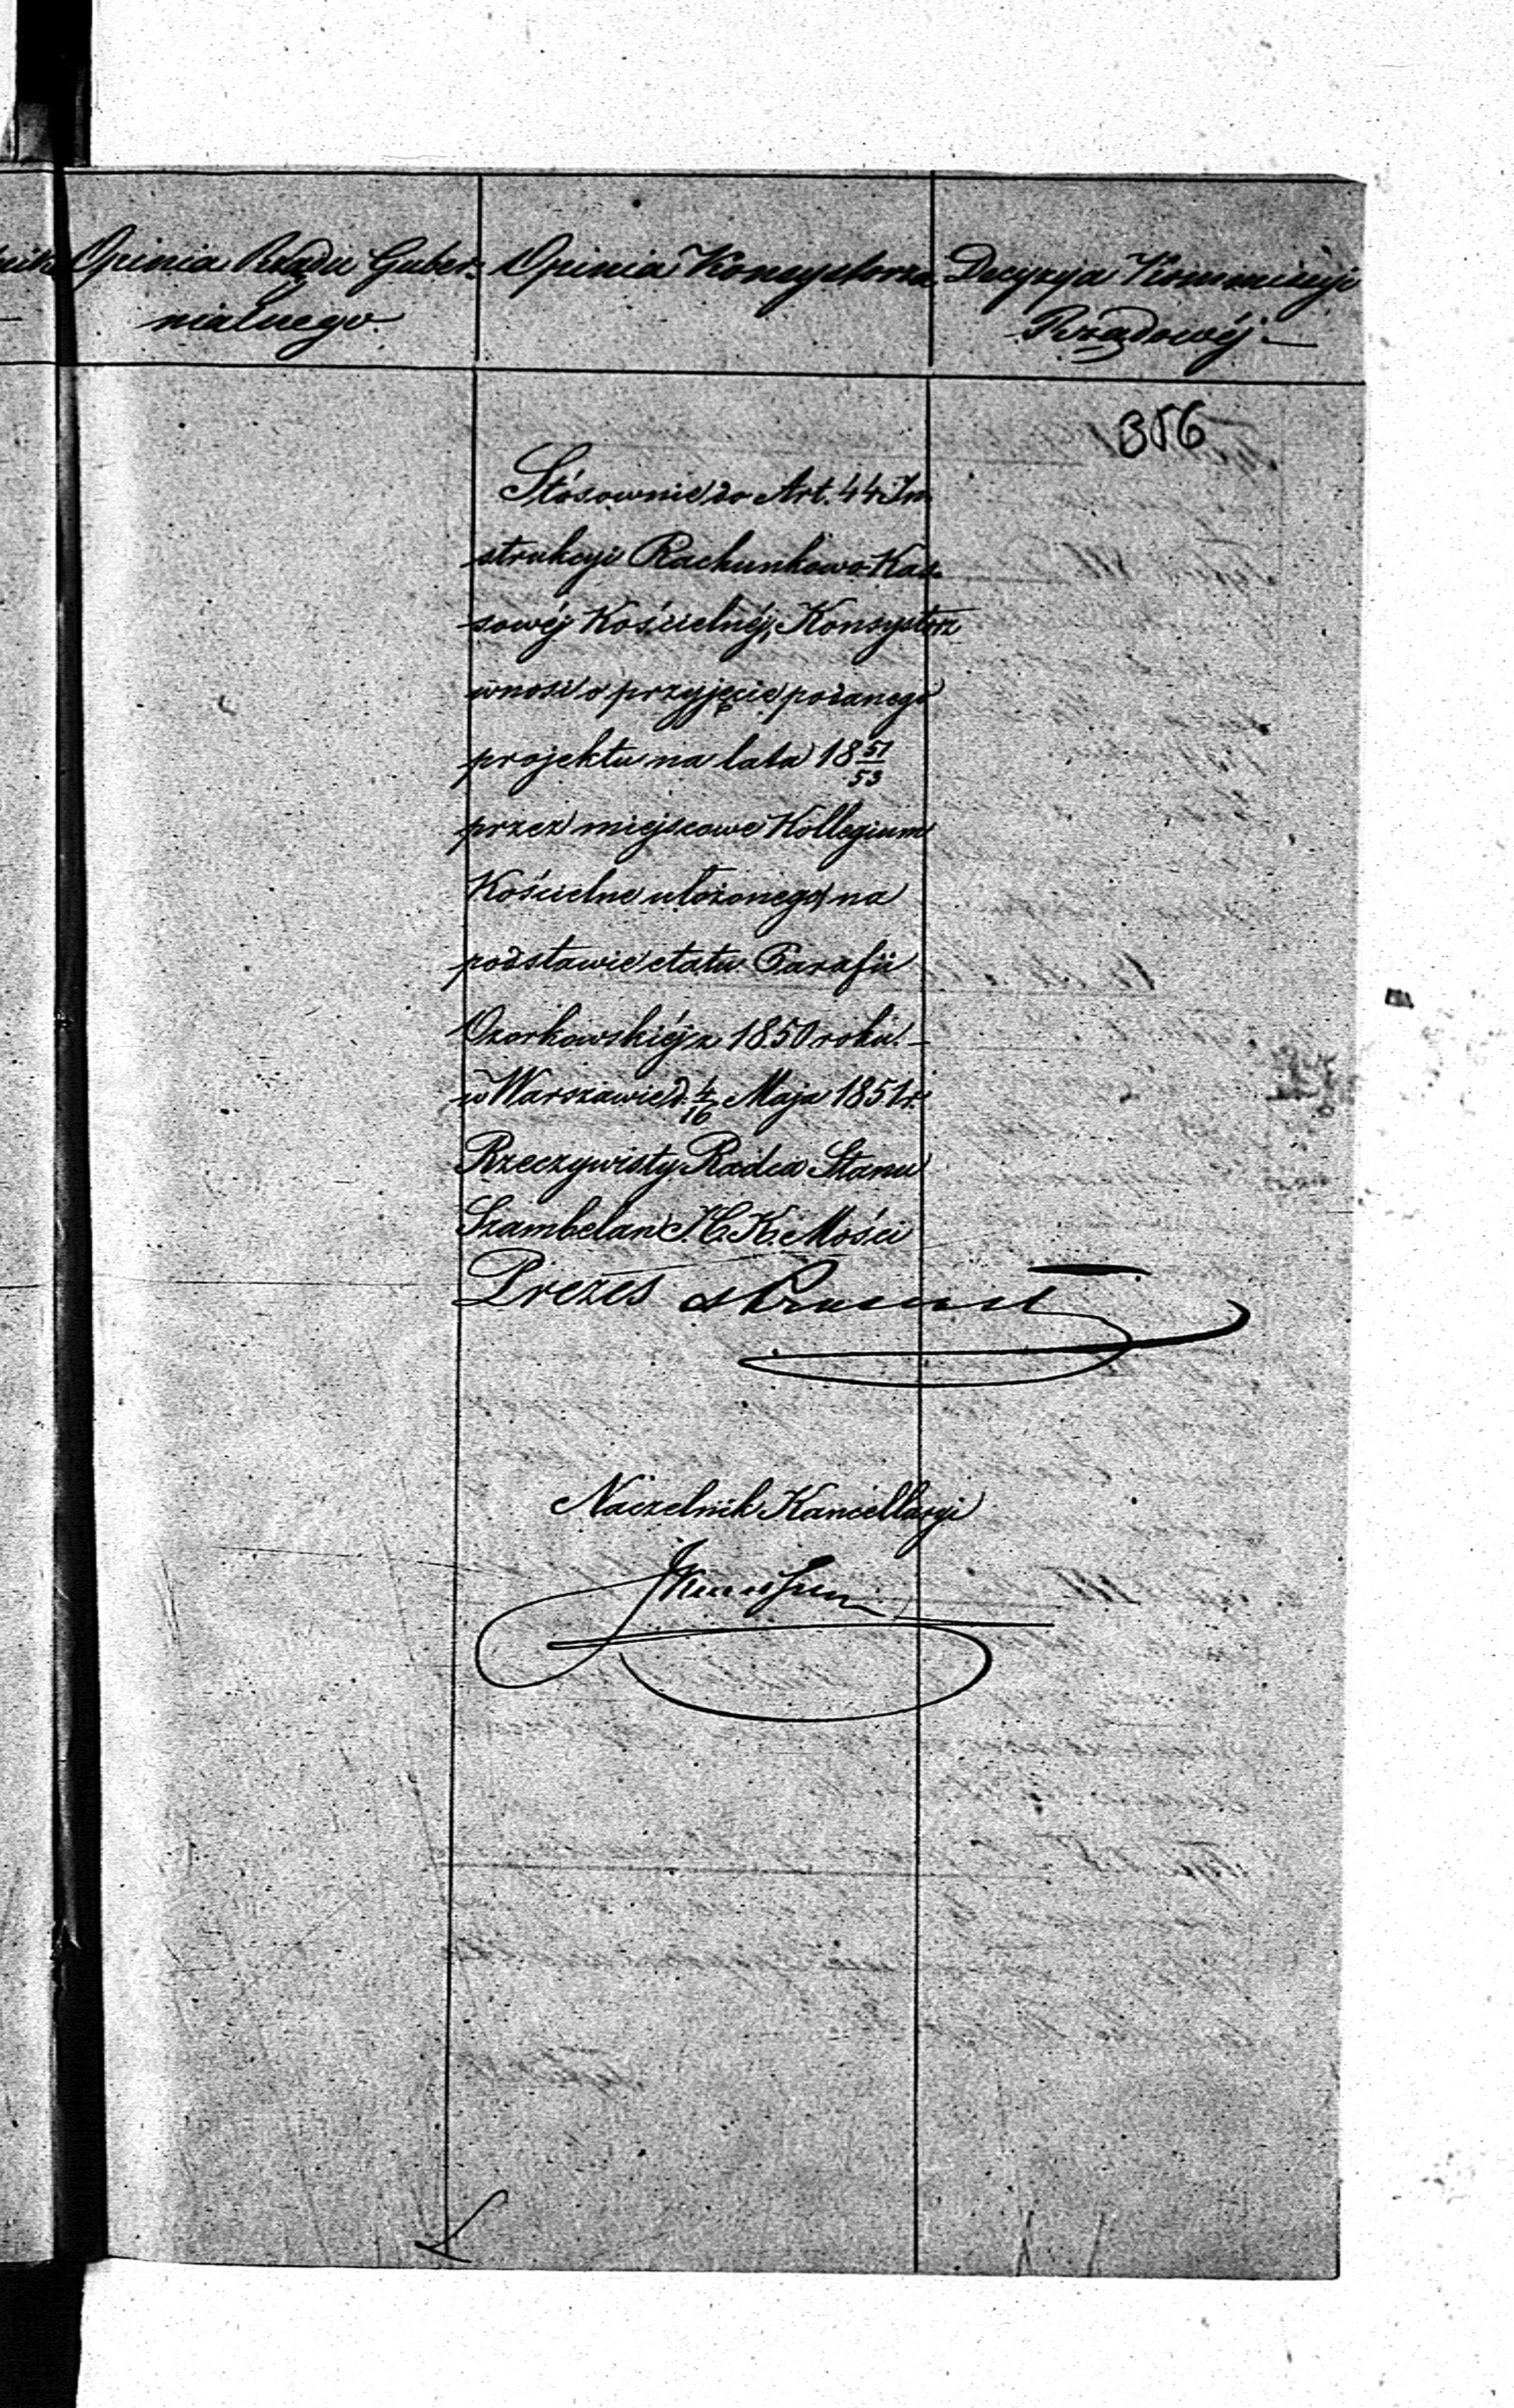 Opinia Rządu Guber-
nialnego.
Opinia Konsystorza
Decyzya Kommissyi
Rządowéj.
356
Stósownie do Art. 44 In
strukcyi Rachunkowo-Kas-
sowéj Kościelnéj, Konsystorz
wnosi o przyjęcie podanego
projektu na lata 18 51/53
przez miejscowe Kollegium
Kościelne ułożonego, na
podstawie etatu Parafii
Ozorkowskiéj z 1850 roku.-
w Warszawie d. 4/16 Maja 1851 r.
Rzeczywisty Radca Stanu
Szambelan J. C. K. Mości
Prezes
Naczelnik Kancellaryi